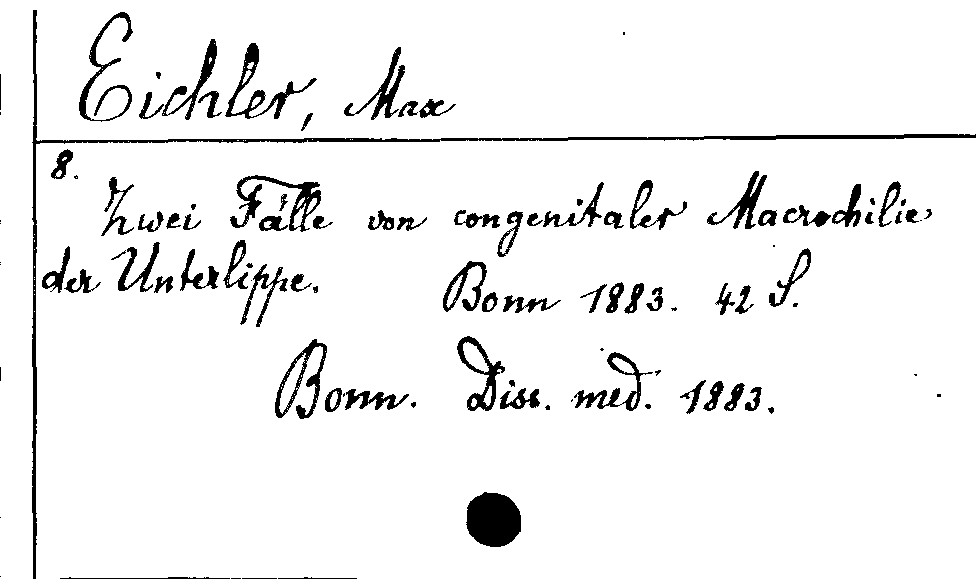 Eichler, Max
8.
Zwei Fälle von congenitaler Macrochilie
der Unterlippe. Bonn 1883. 42 S.
Bonn. Diss. med. 1883.